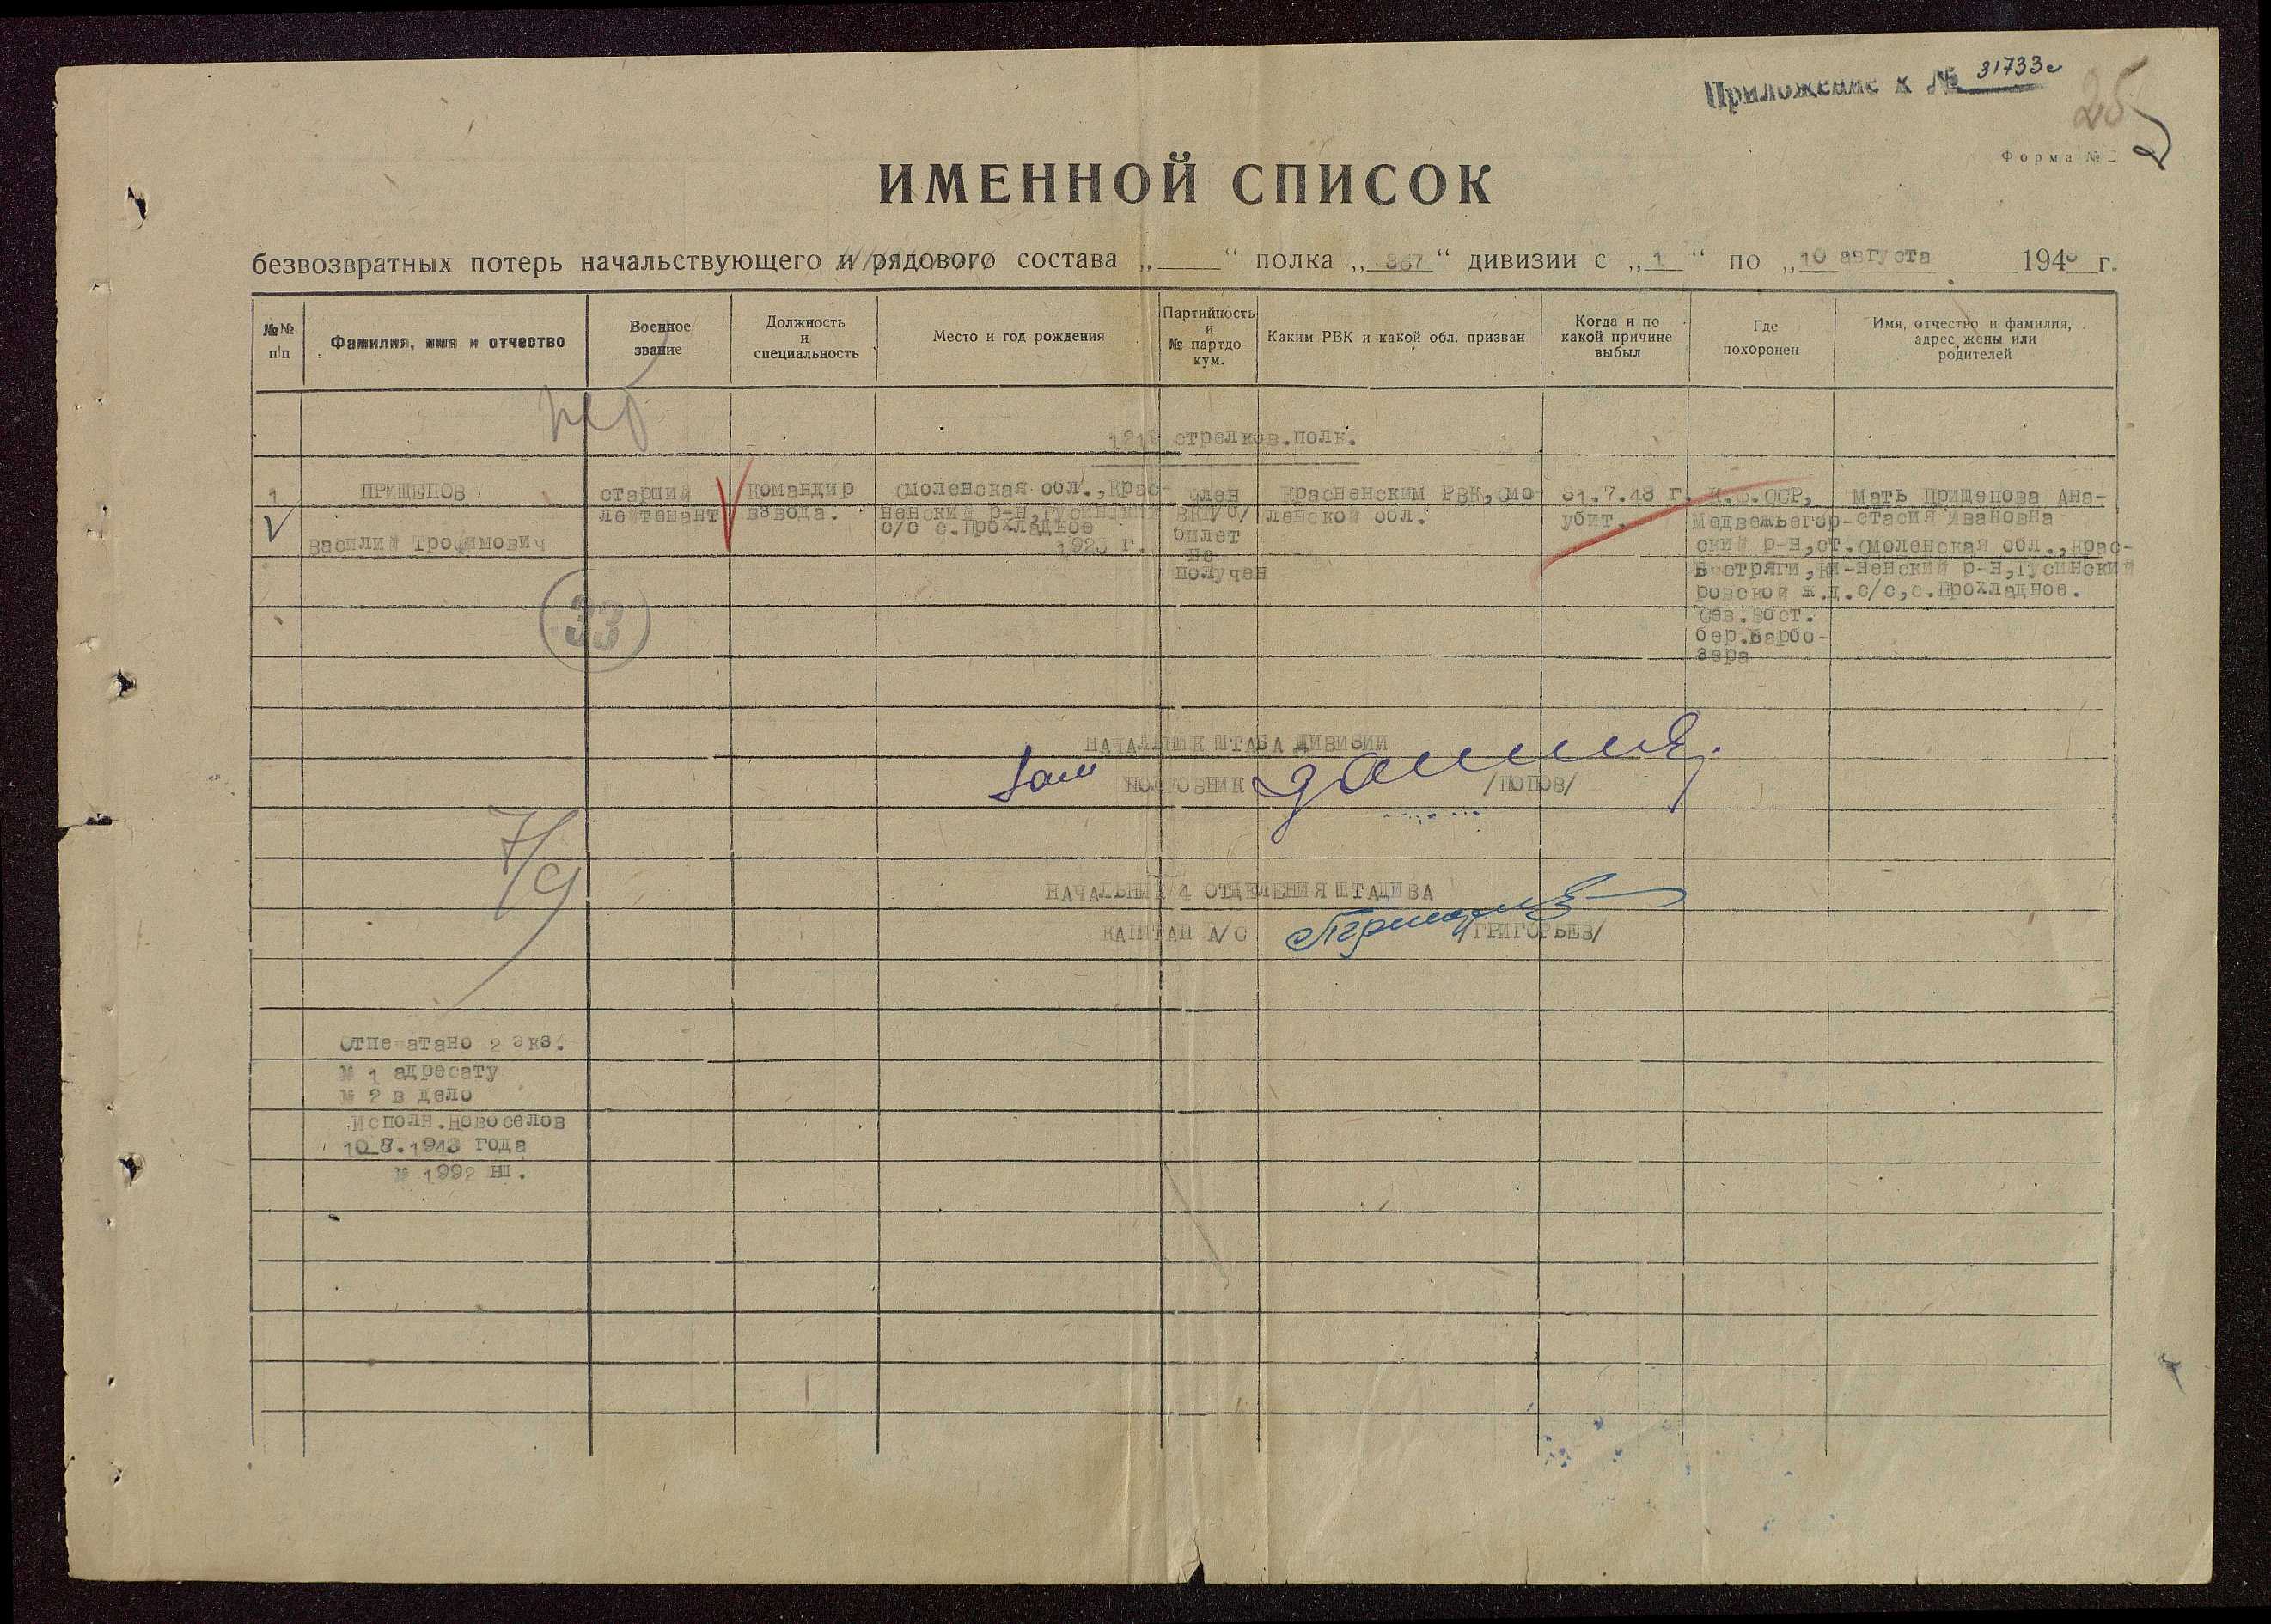 Приложение к № 31733с
25
Форма № 2
ИМЕННОЙ СПИСОК
безвозвратных потерь начальствующего и рядового состава „ “ полка „367“ дивизии с „1“ по „10 августа 1943 г.
№№ п/п
Фамилия, имя и отчество
Военное звание
Должность и специальность
Место и год рождения
Партийность и № партдокум.
Каким РВК и какой обл. призван
Когда и по какой причине выбыл
Где похоронен
Имя, отчество и фамилия, адрес жены или родителей
стрелков.полк.
1
ПРИЩЕПОВ
Василий Трофимович
старший
лейтенант
Командир
взвода.
Смоленская обл., Крас-
ненский р-н, Гусинский
с/с с.Прохладное
1923 г.
член
ВКП/б/
билет
не
получен
Красненским РВК, Смо-
ленской обл.
31.7.43 г.
убит.
К.Ф.ССР,
Медвежьегор-
ский р-н,ст.
Востряги,Ки-
ровской ж.д.
Сев.вост.
бер.Варбо-
зера
Мать Прищепова Ана-
стасия Ивановна
Смоленская обл., Крас-
ненский р-н, Гусинский
с/с, с.Прохладное.
33
НАЧАЛЬНИК ШТАБА ДИВИЗИИ
ПОЛКОВНИК /ПОПОВ/
7/9
НАЧАЛЬНИК 4 ОТДЕЛЕНИЯ ШТАДИВА
КАПИТАН А/С /ГРИГОРЬЕВ/
Отпечатано 2 экз.
№ 1 адресату
№ 2 в дело
Исполн.Новоселов
10.8.1943 года
№ 1992 НШ.